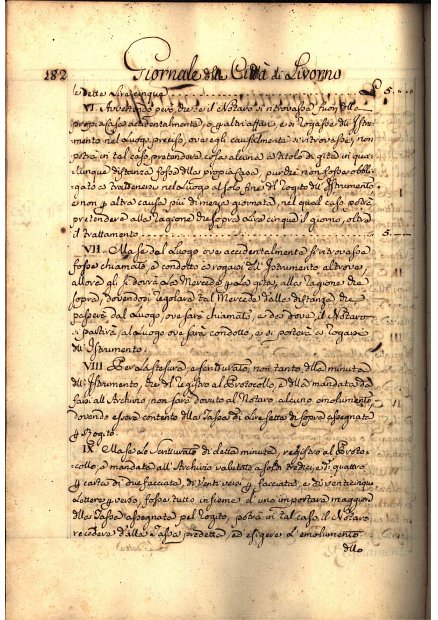 182 Giornale della Città di Livorno
le dette Lire cinque £ 5
VI Avvertendo però, che se il Notaro si ritrovasse fuori della
propria Casa accidentalmente, o per altri affari, e si rogasse dell'Istru-
mento nel Luogo preciso, ove egli casualmente si ritrovasse, non
potrà in tal caso pretendere cosa alcuna a titolo di gita in qua-
lunque distanza fosse dalla propria Casa, purchè non fosse obbli-
gato a trattenersi nel Luogo al solo fine del Rogito dell'Istrumento
e non per altra causa più di mezza giornata, nel qual caso potrà
pretendere alla Ragione di sopra Lire cinque il giorno, oltre
il trattamento 5
VII Ma se dal Luogo ove accidentalmente si ritrovasse
fosse chiamato, e condotto a rogarsi dell'Istrumento altrove,
allora gli si dovrà la Mercede per la gita, alla Ragione di
sopra, dovendosi regolare tal Mercede dalla distanza che
passerà dal Luogo, ove sarà chiamato, e da dove il Notaro
si partirà al Luogo ove sarà condotto, e si porterà a Rogare
dell'Istrumento.
VIII Per la stesura, e scritturato, non tanto della minuta
dell'Istrumento, che del Registro al Protocollo, e della mandata da
farsi all'Archivio non sarà dovuto al Notaro alcuno emolumento
dovendo essere contento della Tassa di Lire sette di sopra assegnata
per Rogito.
IX Ma se lo scritturato di detta minuta, registro al Proto-
collo, e mandata all'Archivio valutato a soldi tredici, e di quattro
per carta di due facciate, di venti versi per facciata, e di venticinque
Lettere per verso, fosse tutto insieme d'una importare maggiore
della Tassa assegnata pel Rogito, potrà in tal caso il Notaro
recedere dalla Tassa predetta, ed esigere l'emolumento
dello